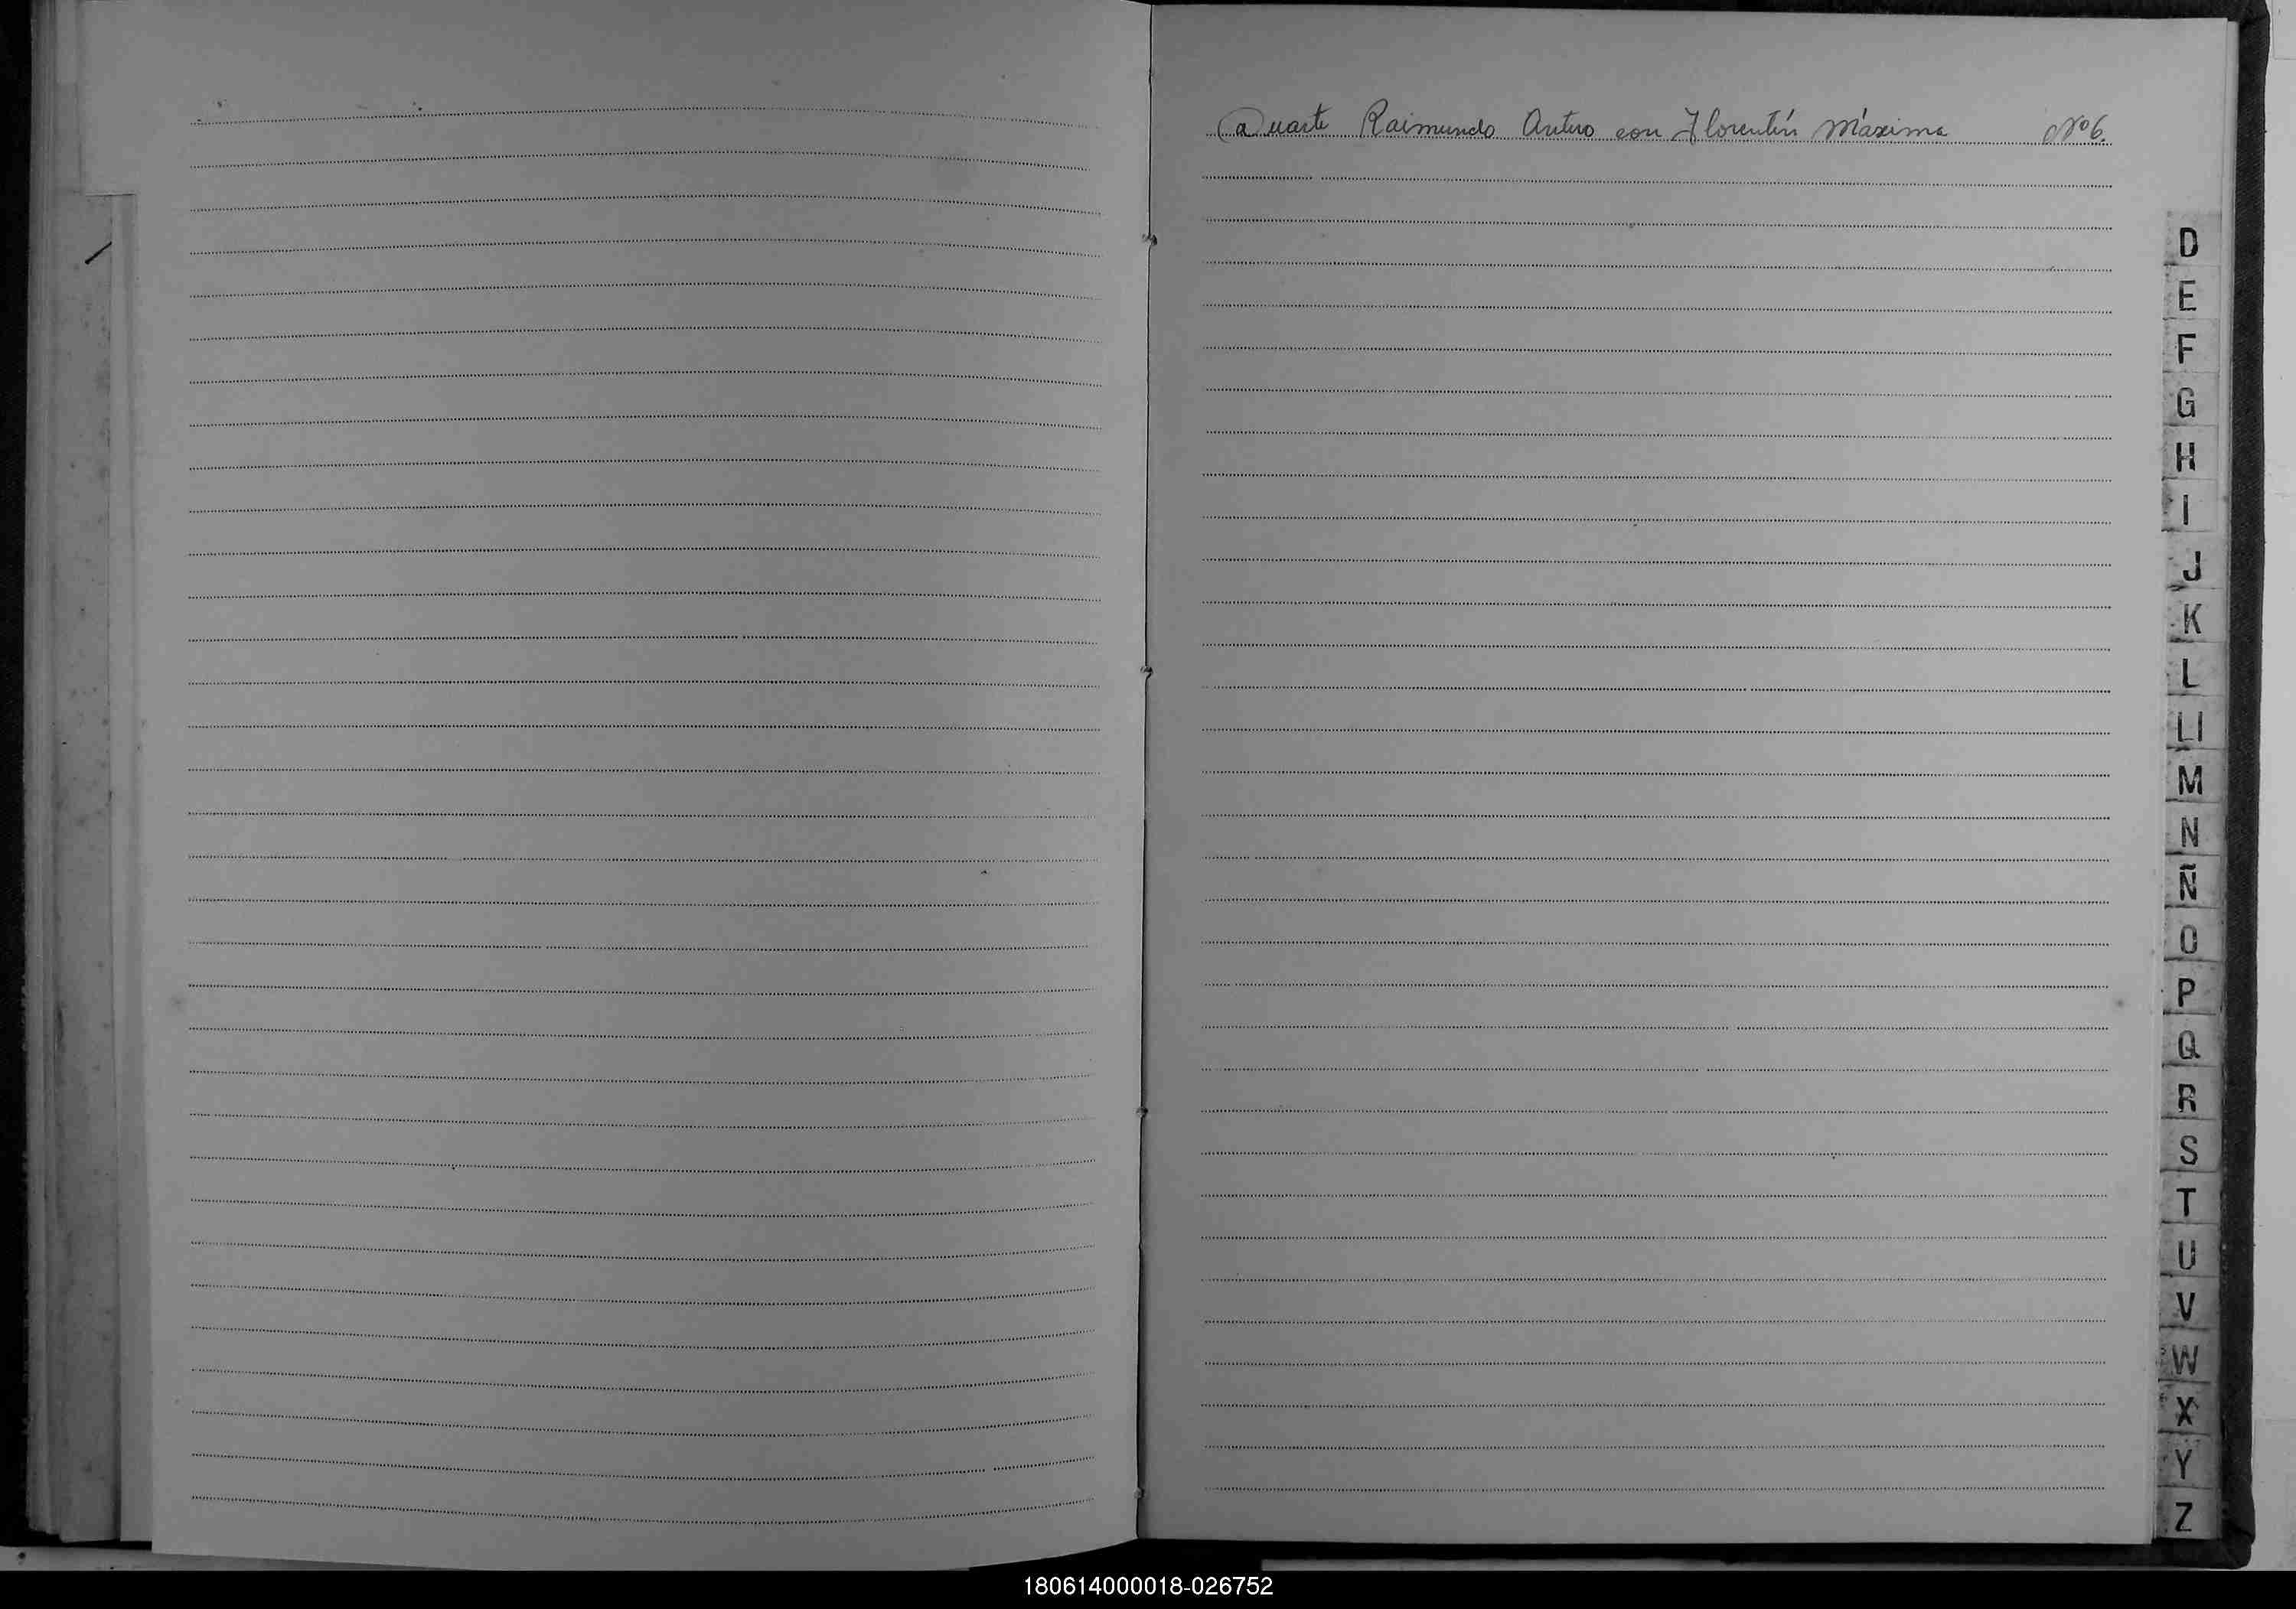 Duarte Raimundo Antero con Florentín Máxima Nº 6
D
E
F
G
H
I
J
K
L
Ll
M
N
Ñ
O
P
Q
R
S
T
U
V
W
X
Y
Z
180614000018-026752